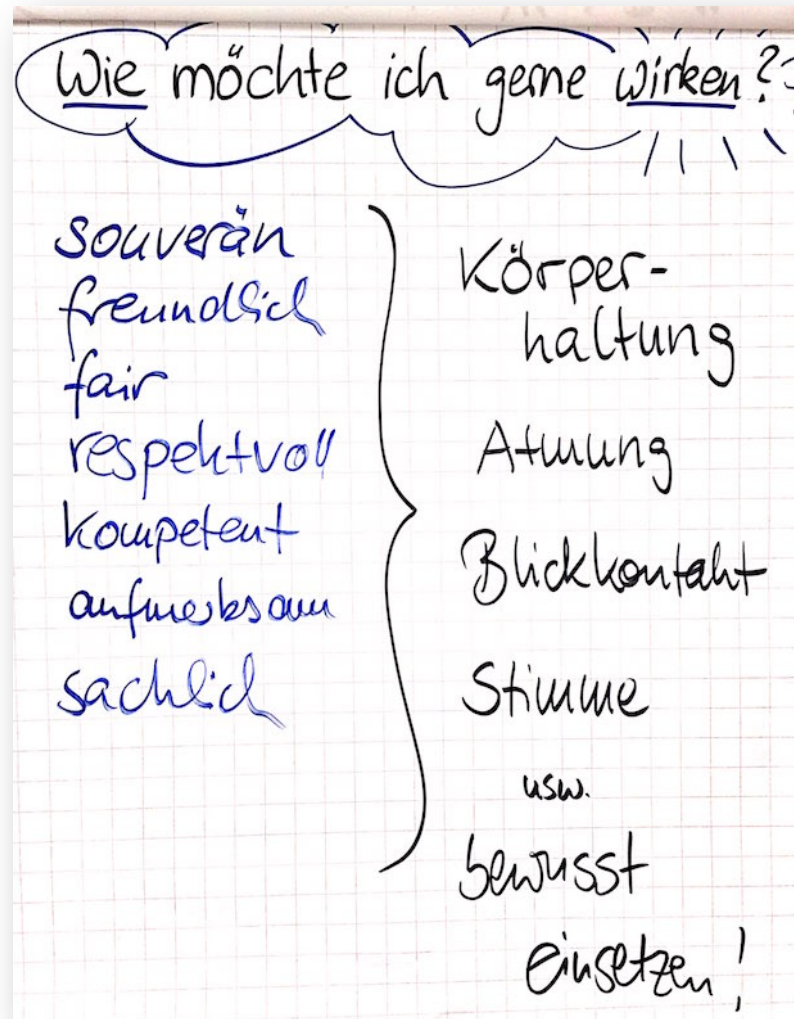 Wie möchte ich gerne wirken?
souverän
freundlich
fair
respektvoll
kompetent
aufmerksam
sachlich
Körper-
haltung
Atmung
Blickkontakt
Stimme
usw.
bewusst
einsetzen!